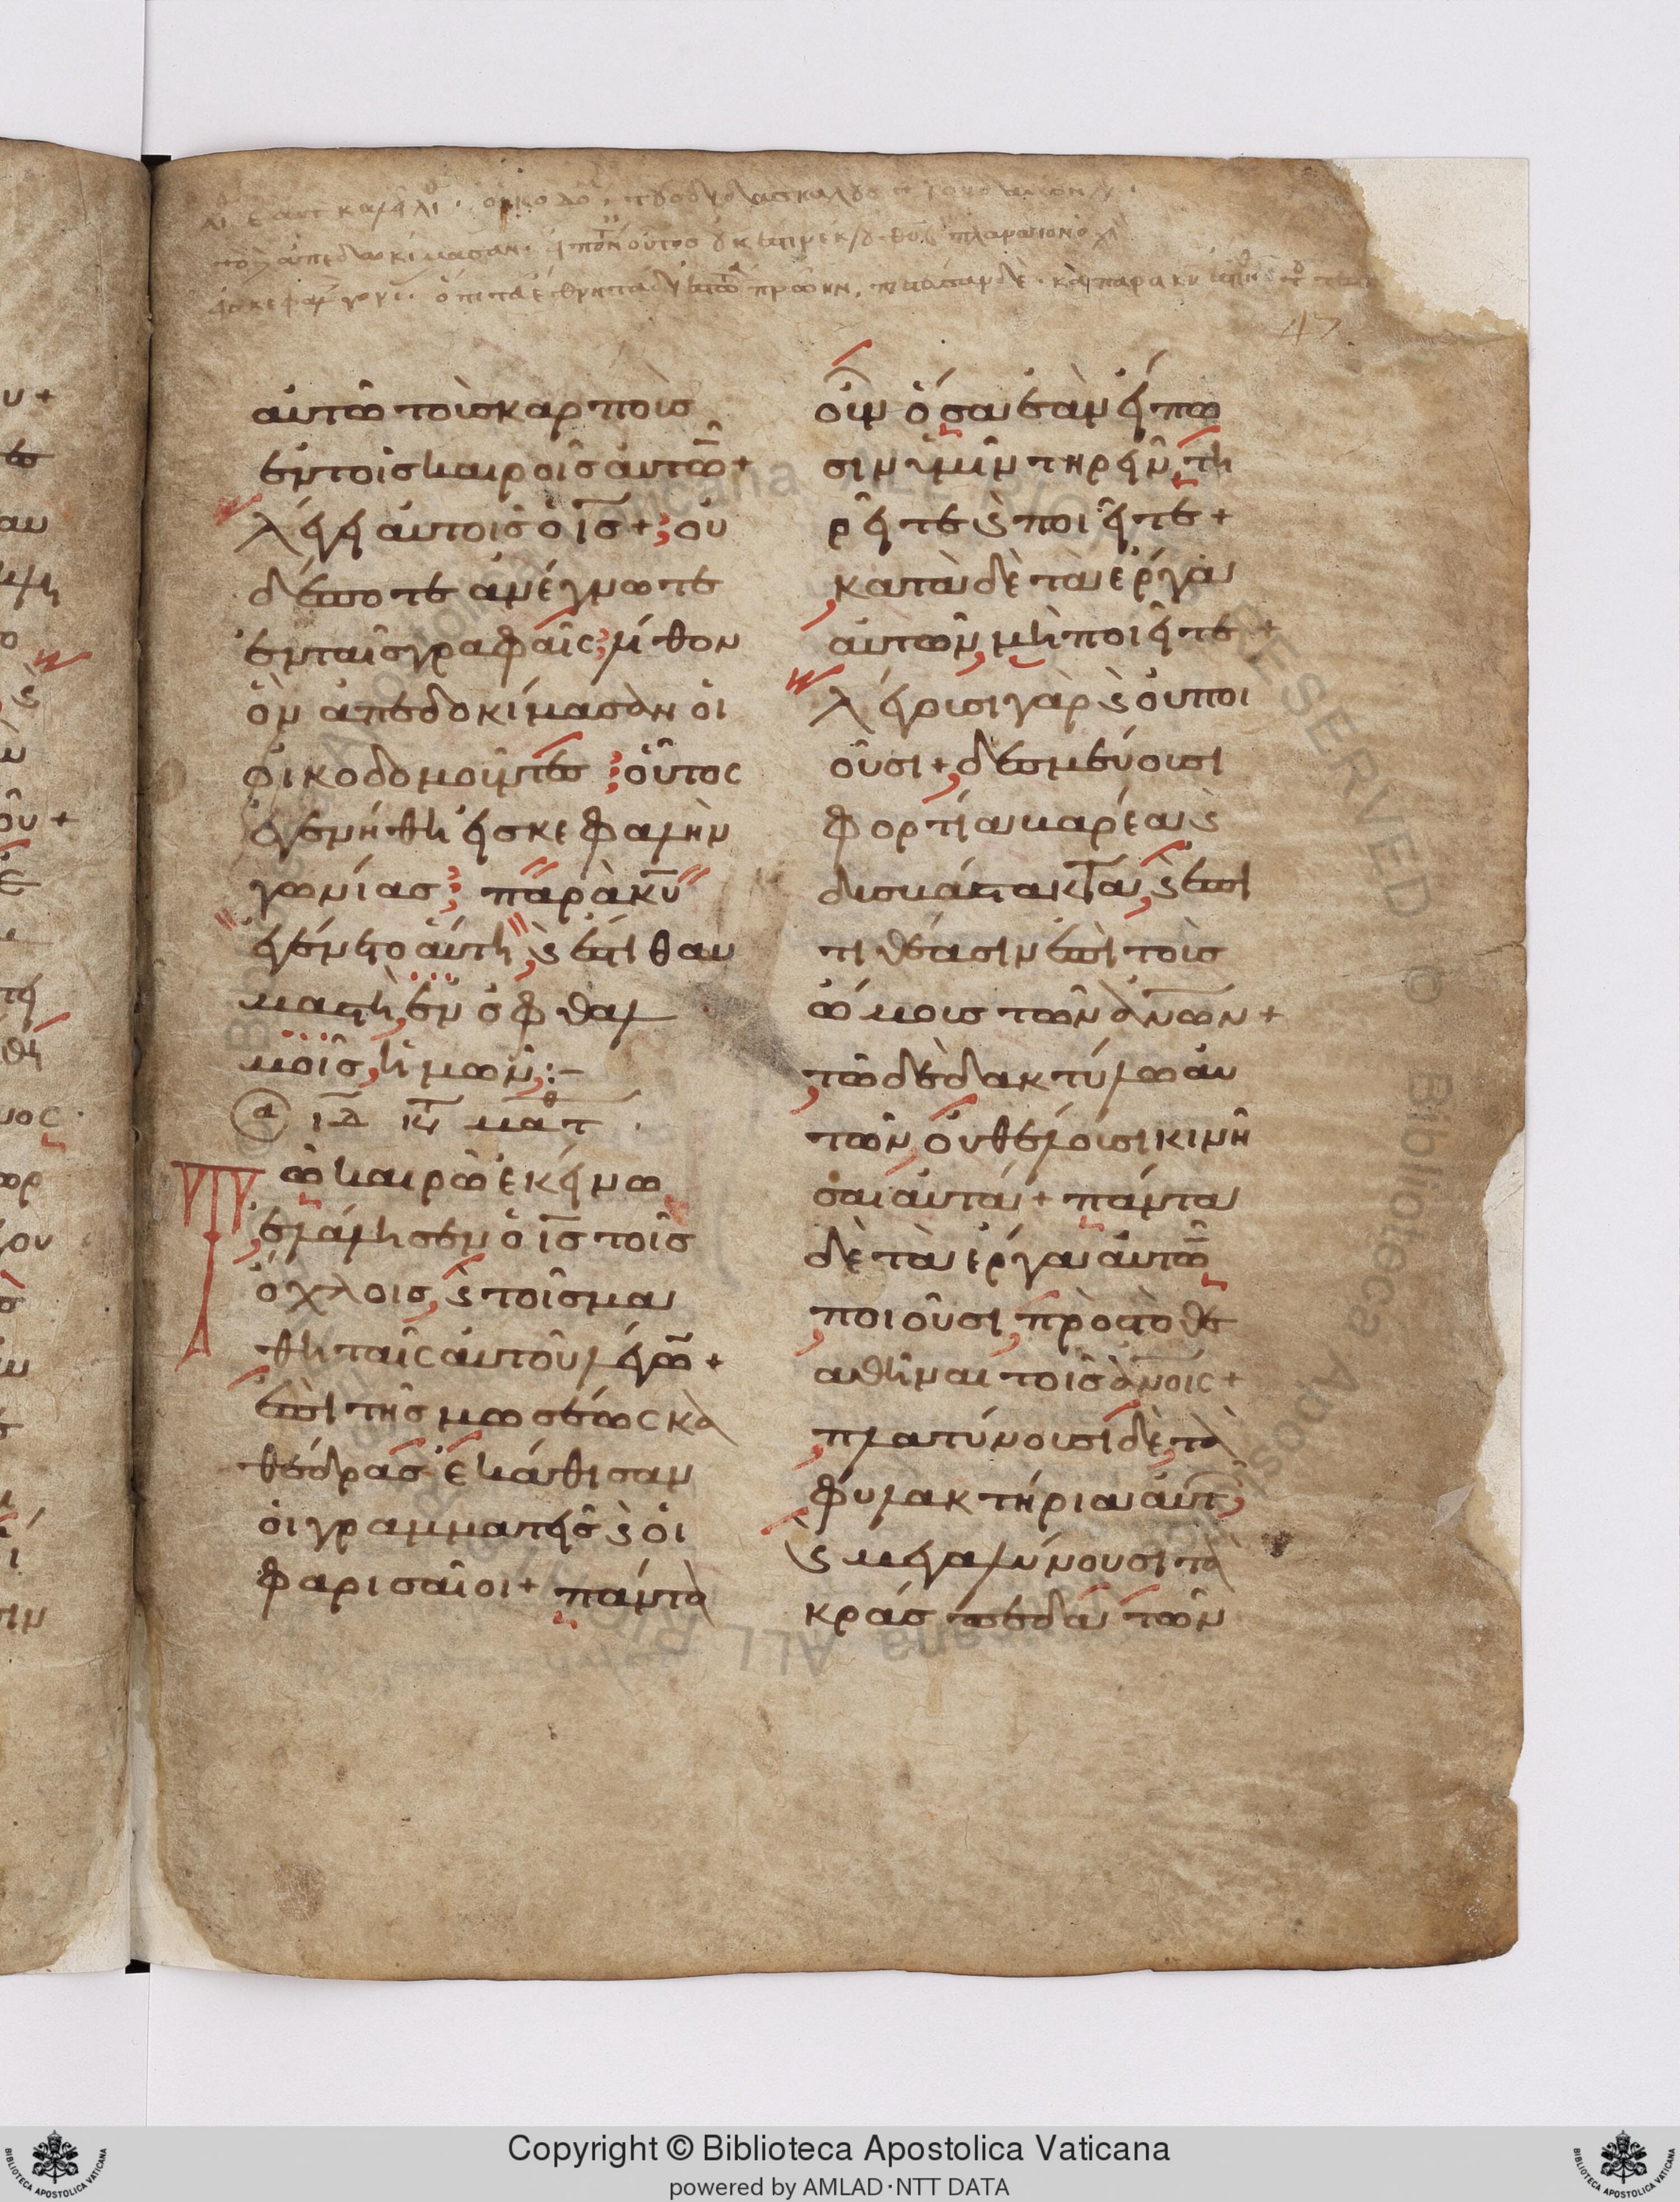 47
αὐτῶ τοὺς καρποὺς
ἐν τοῖς καιροῖς αὐτῶν +
λέγει αὐτοῖς ὁ ις̄ + οὐ
δέποτε ἀνέγνωτε
ἐν ταῖς γραφαῖς λίθον
ὃν ἀπεδοκίμασαν οἱ
οἰκοδομοῦντες οὗτος
ἐγενήθη εἰς κεφαλὴν
γωνίας παρὰ κ̄υ
ἐγένετο αὕτη ϗ ἔστι θαυ
μαστὴ ἐν ὀφθαλ
μοῖς ἡμῶν :-
Τῶ καιρῶ ἐκείνω
ἐλάλησεν ὁ ις̄ τοῖς
ὄχλοις ϗ τοῖς μα
θηταῖς αὐτοῦ λέγω̅ +
ἐπὶ τῆς μωσέως κα
θέδρας ἐκάθισαν
οἱ γραμματεῖς ϗ οἱ
φαρισαῖοι + πάντα
οὖν ὅσα ἐὰν εἴπω
σιν ὑμῖν τηρεῖν τη
ρεῖτε ϗ ποιεῖτε +
κατὰ δὲ τὰ ἔργα
αὐτῶν μὴ ποιεῖτε +
λέγουσι γὰρ ϗ οὐ ποι
οῦσι + δεσμεύουσι
φορτία βαρέα ϗ
δυσβάστακτα ϗ ἐπι
τιθέασιν ἐπὶ τοὺς
ὤμους τῶν ἀν̅ων +
τῶ δὲ δακτύλω αὐ
τῶν οὐ θέλουσι κινῆ
σαι αὐτά + πάντα
δὲ τὰ ἔργα αὐτῶν
ποιοῦσι πρὸς τὸ θε
αθῆναι τοῖς ἀν̅οις +
πλατύνουσι δὲ τὰ
φυλακτήρια αὐτ
ϗ μεγαλύνουσι τὰ
κράσπεδα τῶν
Copyright © Biblioteca Apostolica Vaticana
powered by AMLAD·NTT DATA